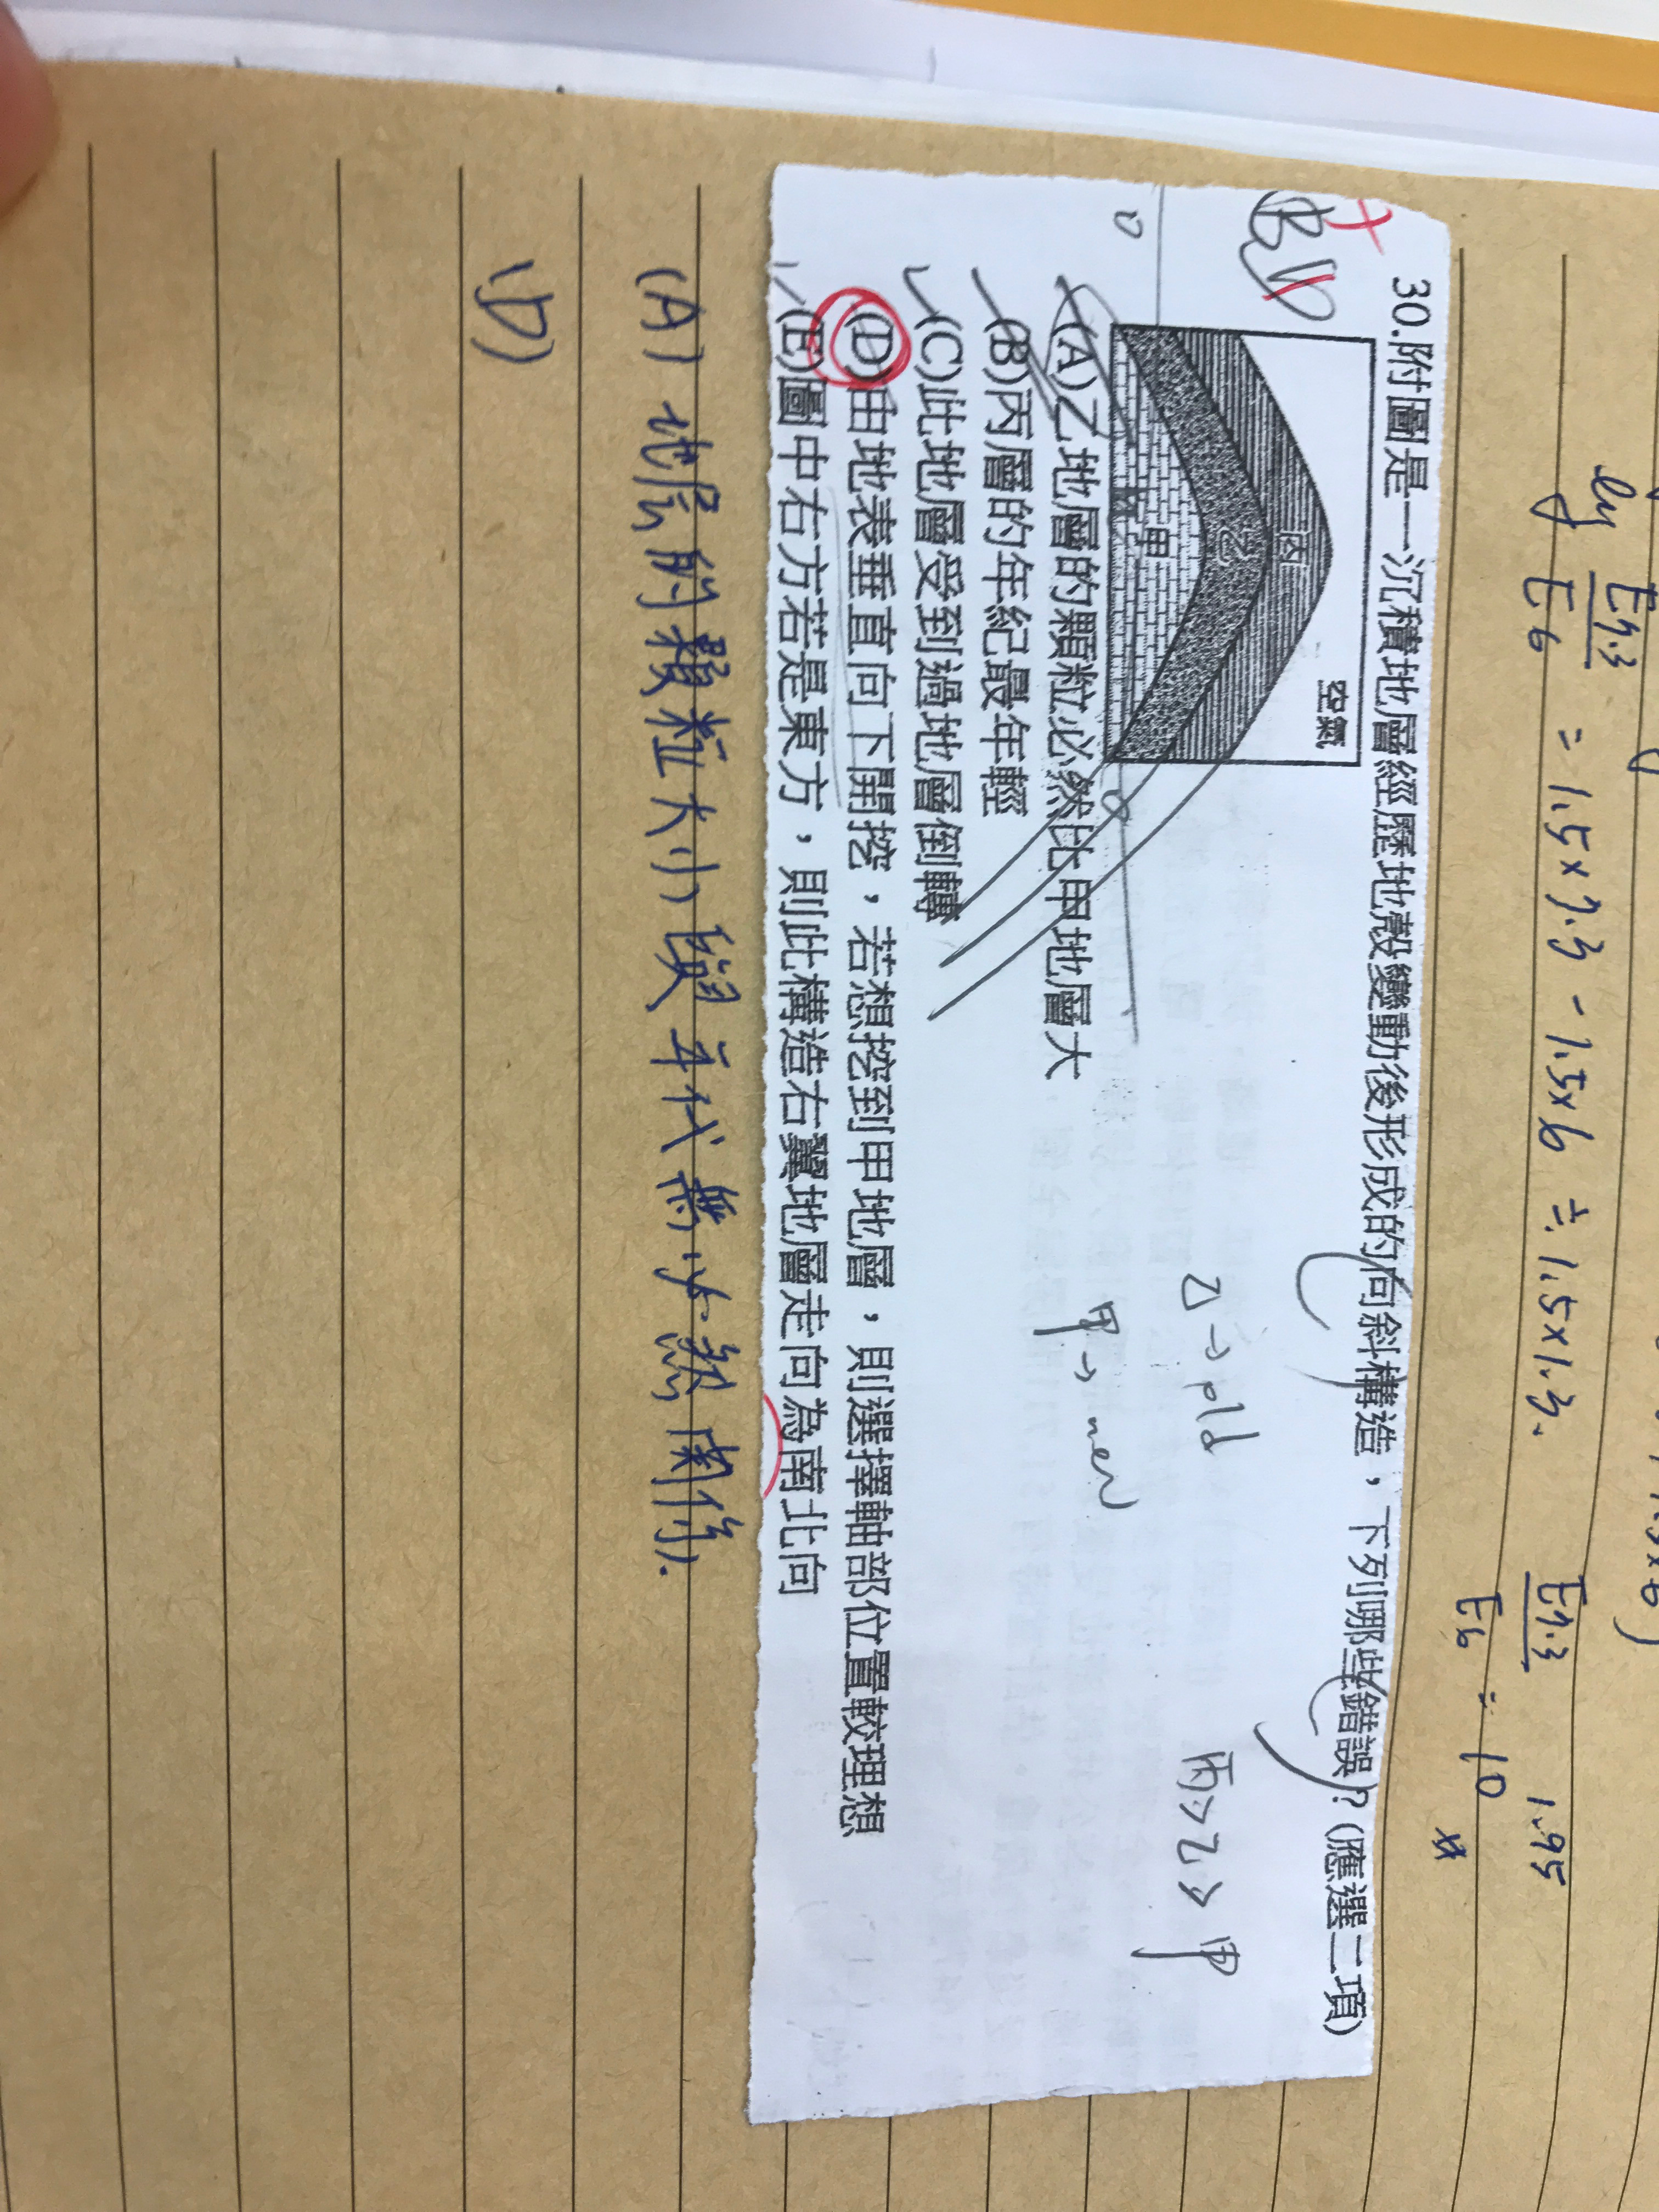 ey E7.3/E6 = 1.5×7.3 - 1.5×6 = 1.5×1.3.
E7.3/E6 = 10 1.95
BD
30.附圖是一沉積地層經歷地殼變動後形成的向斜構造，下列哪些錯誤？(應選二項)
空氣
丙
乙
甲
乙→old
甲→new
丙>乙>甲
(A)乙地層的顆粒必然比甲地層大
(B)丙層的年紀最年輕
(C)此地層受到過地層倒轉
(D)由地表垂直向下開挖，若想挖到甲地層，則選擇軸部位置較理想
(E)圖中右方若是東方，則此構造右翼地層走向為南北向
(A) 地層的顆粒大小跟年代無必然關係.
(D)